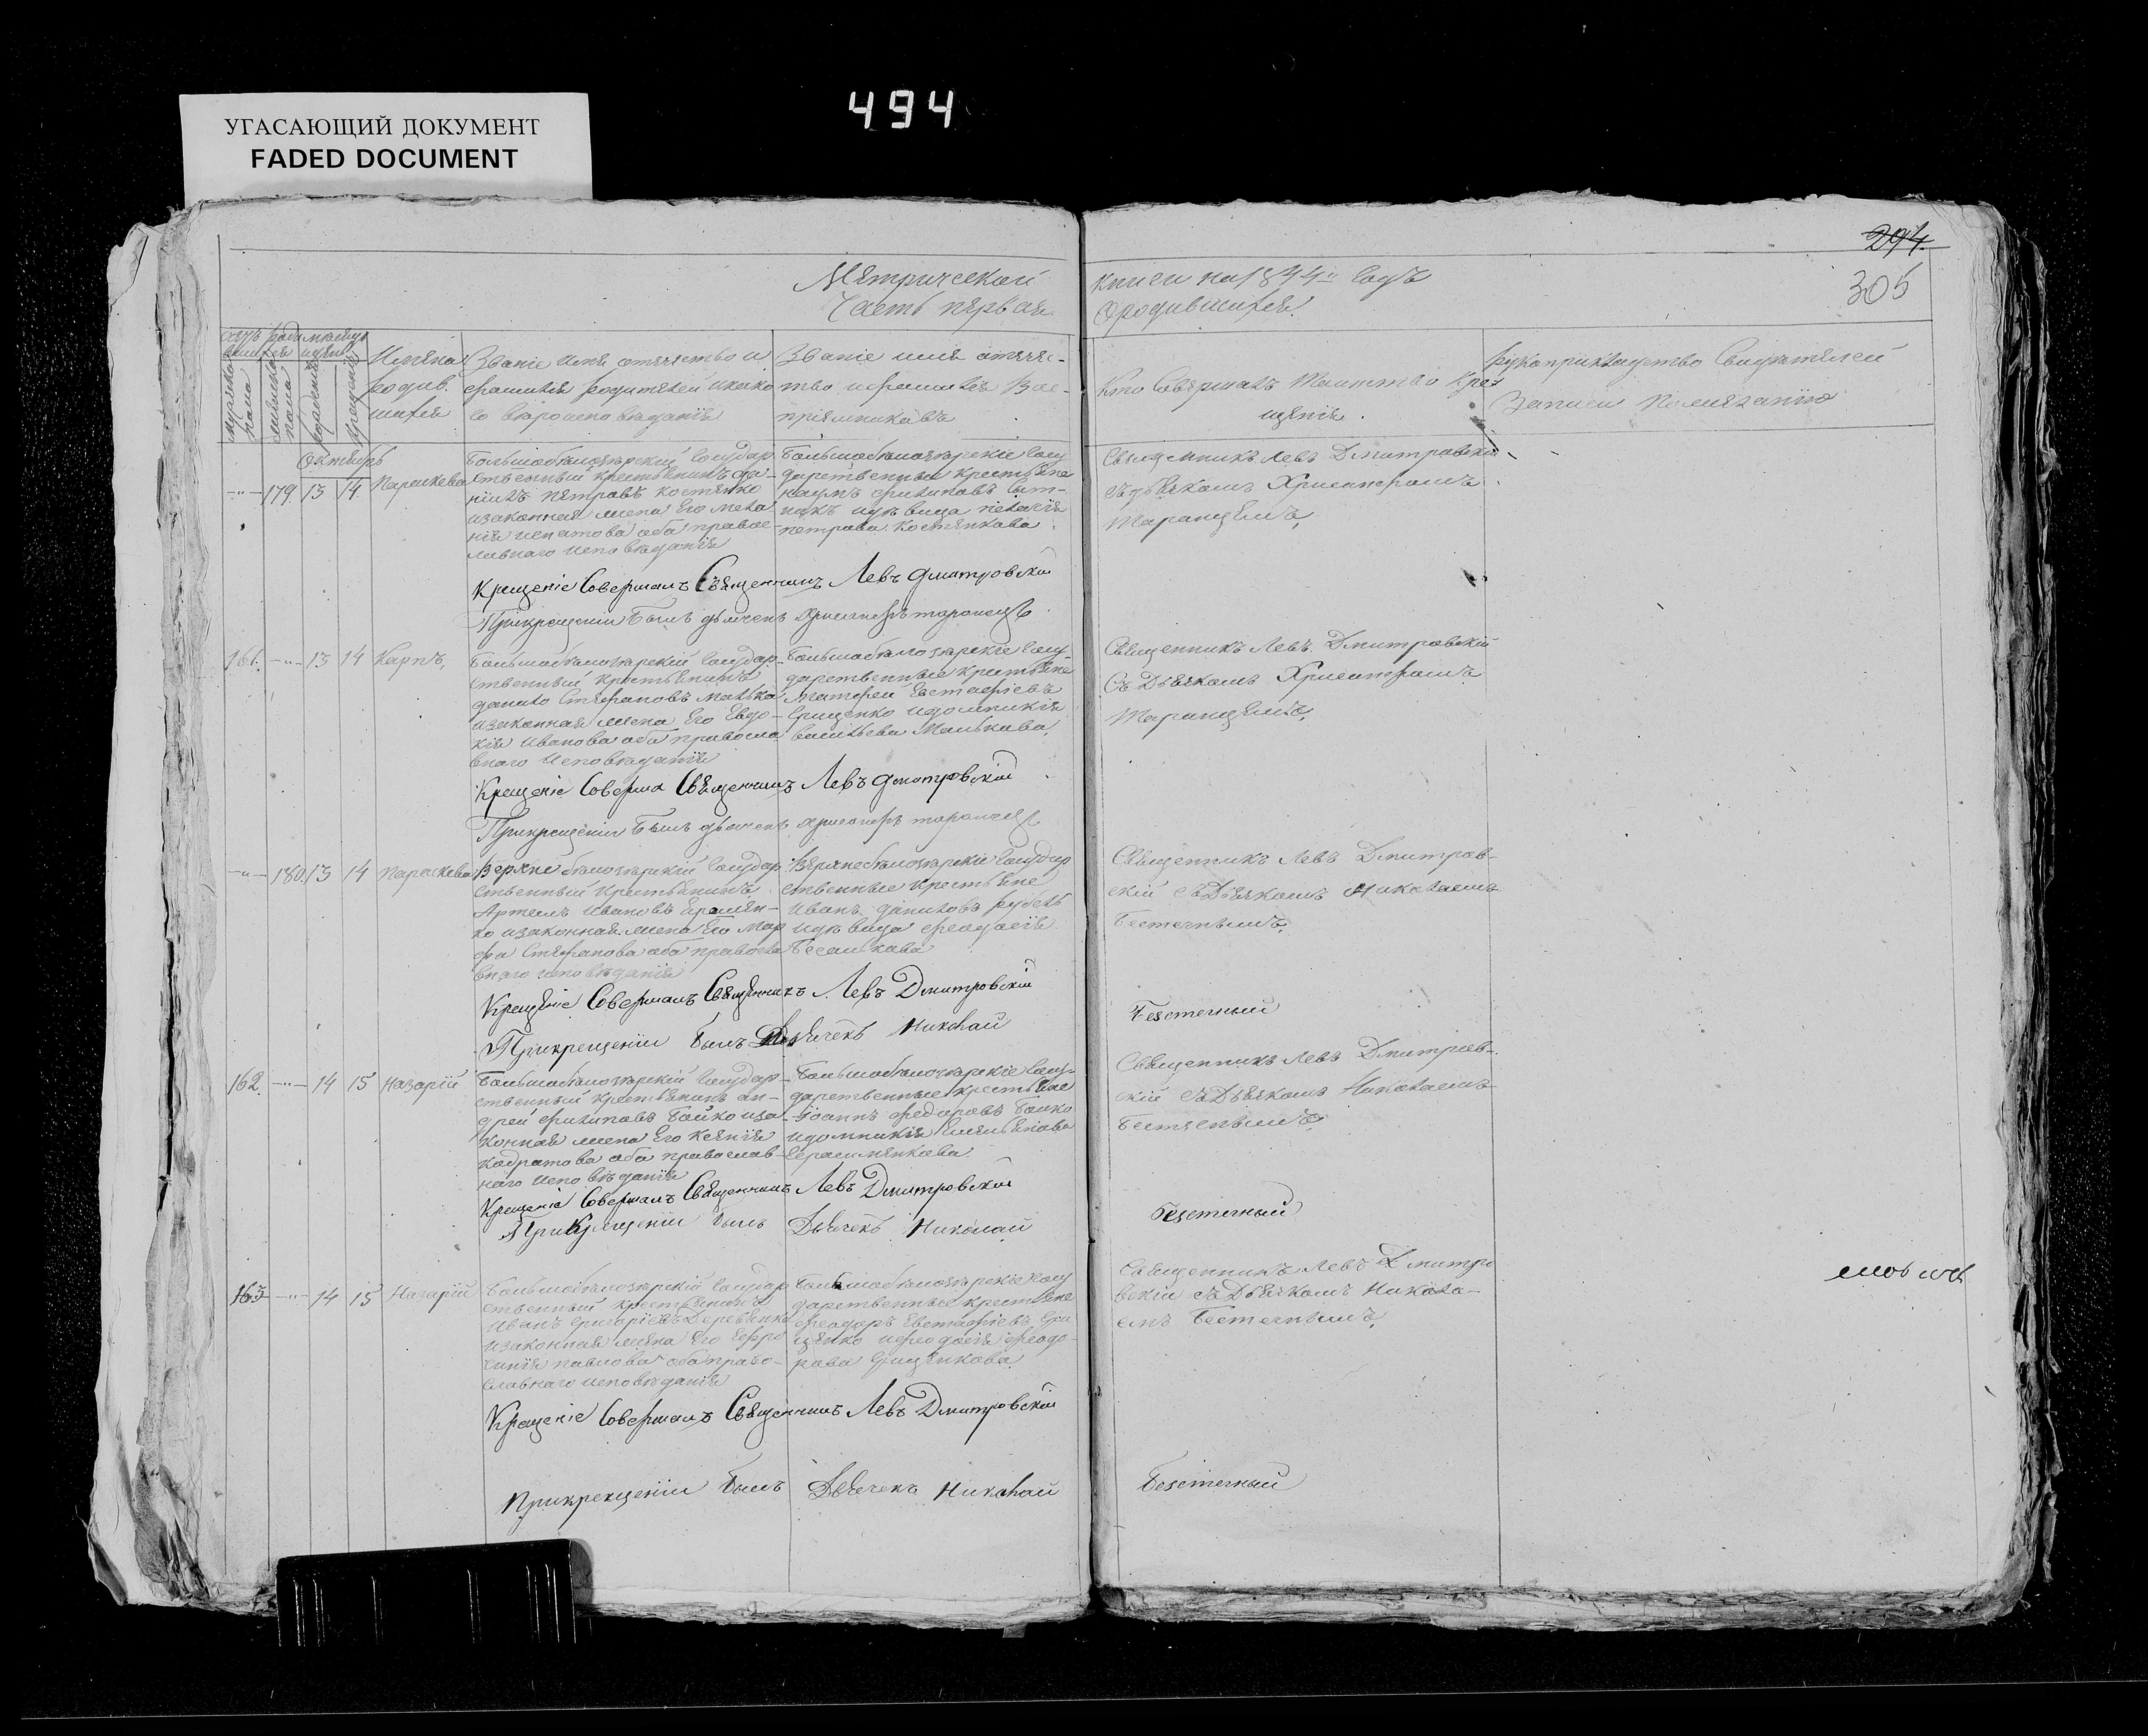 494
УГАСАЮЩИЙ ДОКУМЕНТ
FADED DOCUMENT
294.
305
Метрической книги на 1844й годъ
Часть первая о родившихся.
Имяна родив. шихся
Званіе имя отечество и фамилія родителей и како го вѣроисповѣданія
Званіе имя отечес- тво и фамилія Вос- пріемниковъ
Кто Совершалъ Таинство Кре- щенія.
Рукоприкладство Свидѣтелей Записи По желанію
Октябрь
179. 13 14 Параскева
Большебѣлозѣрскій Государ
ственный крестьянинъ да-
ніилъ петровъ костенко
и законная жена Его мела
нія игнатова оба правос-
лавнаго исповѣданія
Большебѣлозѣрскіе Госу
дарственныи крестьяне
наумъ филиповъ Сыт-
никъ и дѣвица пелагія
петрова Костенкова.
Священникъ Левъ Дмитровскій
съ дьячкомъ Христофомъ
Таранцемъ,
Крещеніе Совершалъ Священникъ Левъ Дмитровскій
При крещеніи былъ дьячекъ христофъ таранецъ
161. 13 14 Карпъ,
Большебѣлозѣрскій Государ-
ственный крестьянинъ
данило Стефановъ Малько
и законная жена Его Евдо-
кія Иванова оба правосла
внаго Исповѣданія
Большебѣлозѣрскіе Госу-
дарственные крестьяне
матфей Евстафіевъ
Грищенко и домникія
васильева Малькова,
Священникъ Левъ Дмитровскій
Съ Дьячкомъ Христофомъ
Таранцемъ,
Крещеніе Соверша Священникъ Левъ Дмитровскій
При крещеніи былъ дьячекъ христофъ таранецъ
180. 13 14 Параскева
Верхнебѣлозѣрскій Государ
ственный Крестьянинъ
Артемъ Ивановъ Еремен-
ко и законная жена Его Мар
фа Стефанова оба правосла
внаго исповѣданія
Верхнебѣлозѣрскіе Государ
ственные крестьяне
Иванъ даниловъ рубель
и дѣвица феодосія
Бесашкова
Священникъ Левъ Дмитров-
скій съ Дьячкомъ Николаемъ
Бестечнымъ,
Крещеніе Совершалъ Священникъ Левъ Дмитровскій
При крещеніи былъ Дьячекъ Николай Безтечный
162. 14 15 Назарій
Большебѣлозѣрскій Государ-
ственный крестьянинъ ан-
дрей филиповъ Бойко и за
конная жена Его Ксенія
кодратова оба православ-
наго исповѣданія
Большебѣлозѣрскіе Госу-
дарственные крестьяне
Іоаннъ федоровъ Бойко
и домникія Емельянова
Герасименкова
Священникъ Левъ Дмитров-
скій съ Дьячкомъ Николаемъ
Бестечнымъ
Крещеніе Совершалъ Священникъ Левъ Дмитровскій
При Крещеніи былъ Дьячекъ Николай Безтечный
163 14 15 Назарій
Большебѣлозѣрскій Государ
ственный крестьянинъ
Иванъ Григоріевъ Деревянко
и законная жена Его Ефро
синія павлова оба право-
славнаго исповѣданія
Большебѣлозѣрскіе Госу
дарственные крестьяне
феодоръ Евстафіевъ Гри
щенко и феодосія феодо-
рова Грищенкова
Священникъ Левъ Дмитро
вскій съ Дьячкомъ Никола-
емъ Бестечнымъ,
Крещеніе Совершалъ Священникъ Левъ Дмитровскій
При крещеніи былъ Дьячекъ Николай Безтечный